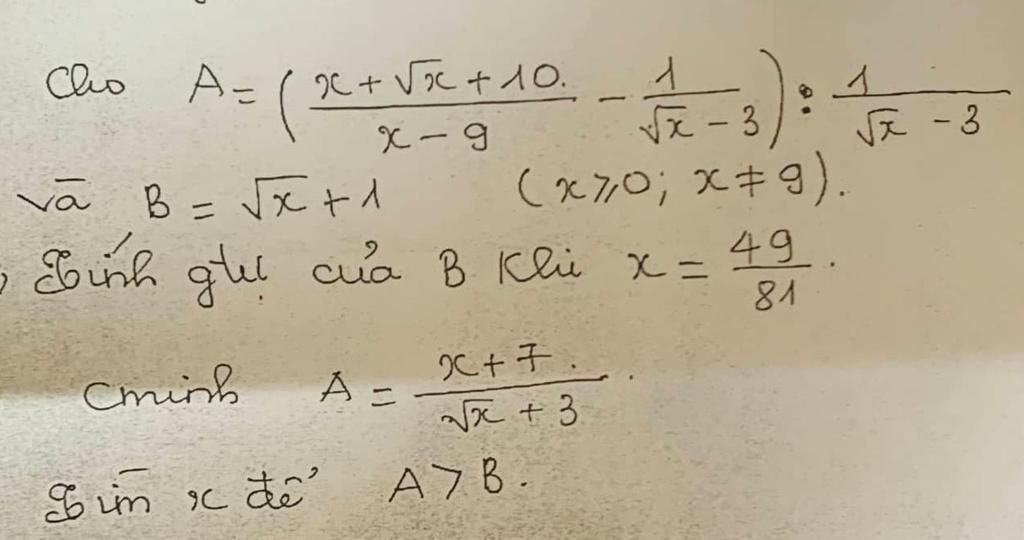 Cho A = ( (x + √x + 10) / (x - 9) - 1 / (√x - 3) ) : 1 / (√x - 3)
và B = √x + 1 (x ≥ 0; x ≠ 9).
Tính gtrị của B khi x = 49/81.
Cminh A = (x + 7) / (√x + 3).
Tìm x để A > B.